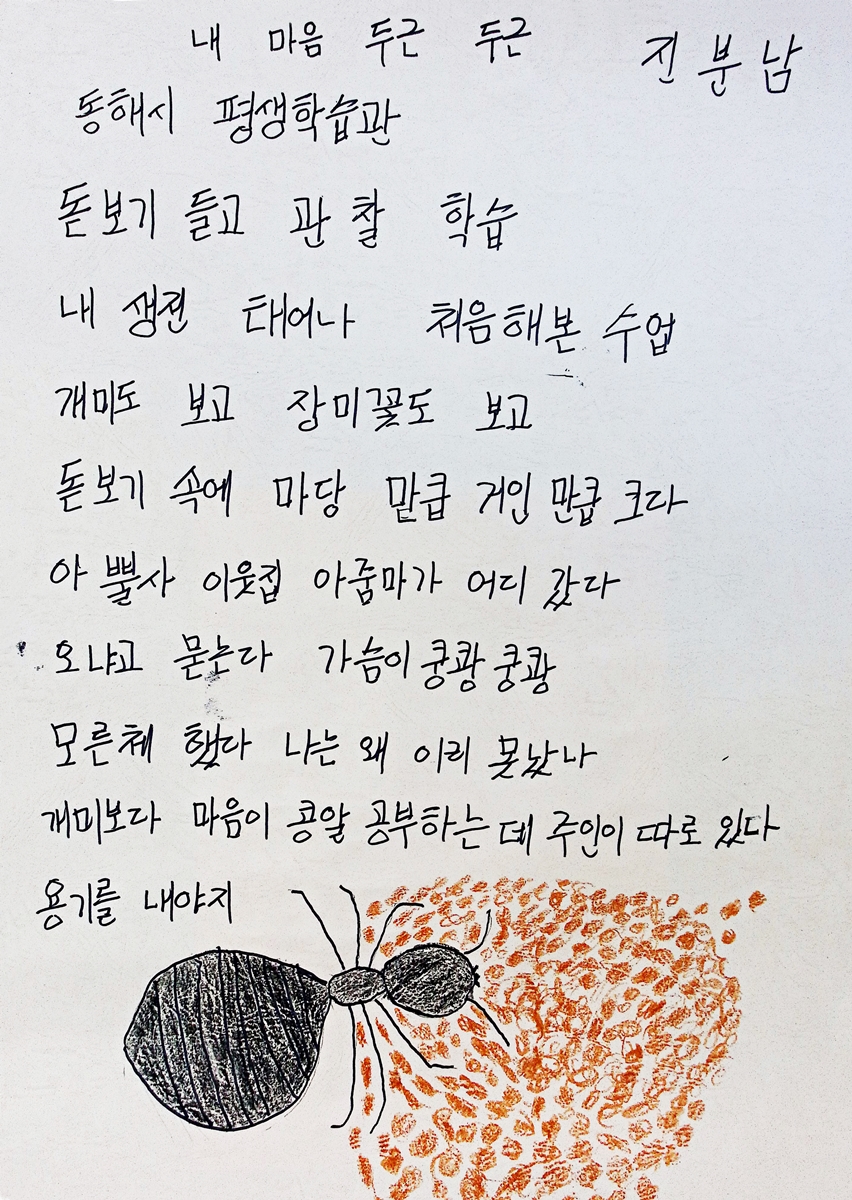 내 마음 두근 두근 진분남
동해시 평생학습관
돋보기 들고 관찰 학습
내 생전 태어나 처음해본 수업
개미도 보고 장미꽃도 보고
돋보기 속에 마당 맡큽 거인 만큽 크다
아 뿔사 이웃집 아줌마가 어디 갔다
오냐고 묻는다 가슴이 쿵쾅 쿵쾅
모른체 했다 나는 왜 이리 못났나
개미보다 마음이 콩알 공부하는데 주인이 따로 있다
용기를 내야지